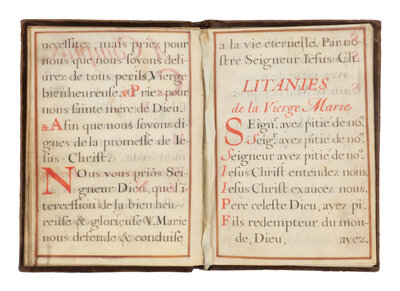 necessitez mais priez pour
nous que nous soyons deli-
urez de tous perils, Vierge
bienheureuse. ℣. Priez pour
nous sainte mere de Dieu.
℟. Afin que nous soyons di-
gnes de la promesse de Ie-
sus-Christ.
NOus vous priõs Sei-
gneur Dieu, que d'i
tercession de la bien heu-
reuse & glorieuse V. Marie
nous defende & conduise
a la vie eternelle. Par no-
stre Seigneur Iesus-Ch.
LITANIES
de la Vierge Marie
SEign.r ayez pitié de no.s
Seig.r ayez pitié de no.s
Seigneur ayez pitié de no.s
Iesus Christ entendez nous.
Iesus Christ exaucez nous.
Pere celeste Dieu, ayez pi.
Fils redempteur du mon-
de, Dieu, ayez.